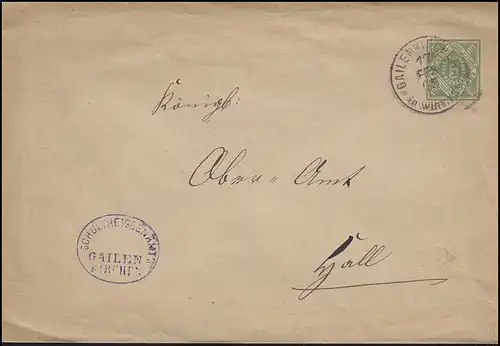 GAILENKIRCHEN
17
FEB
5
Königl:
Ober-Amt
Hall
SCHULTHEISSENAMT
GAILEN
KIRCHEN